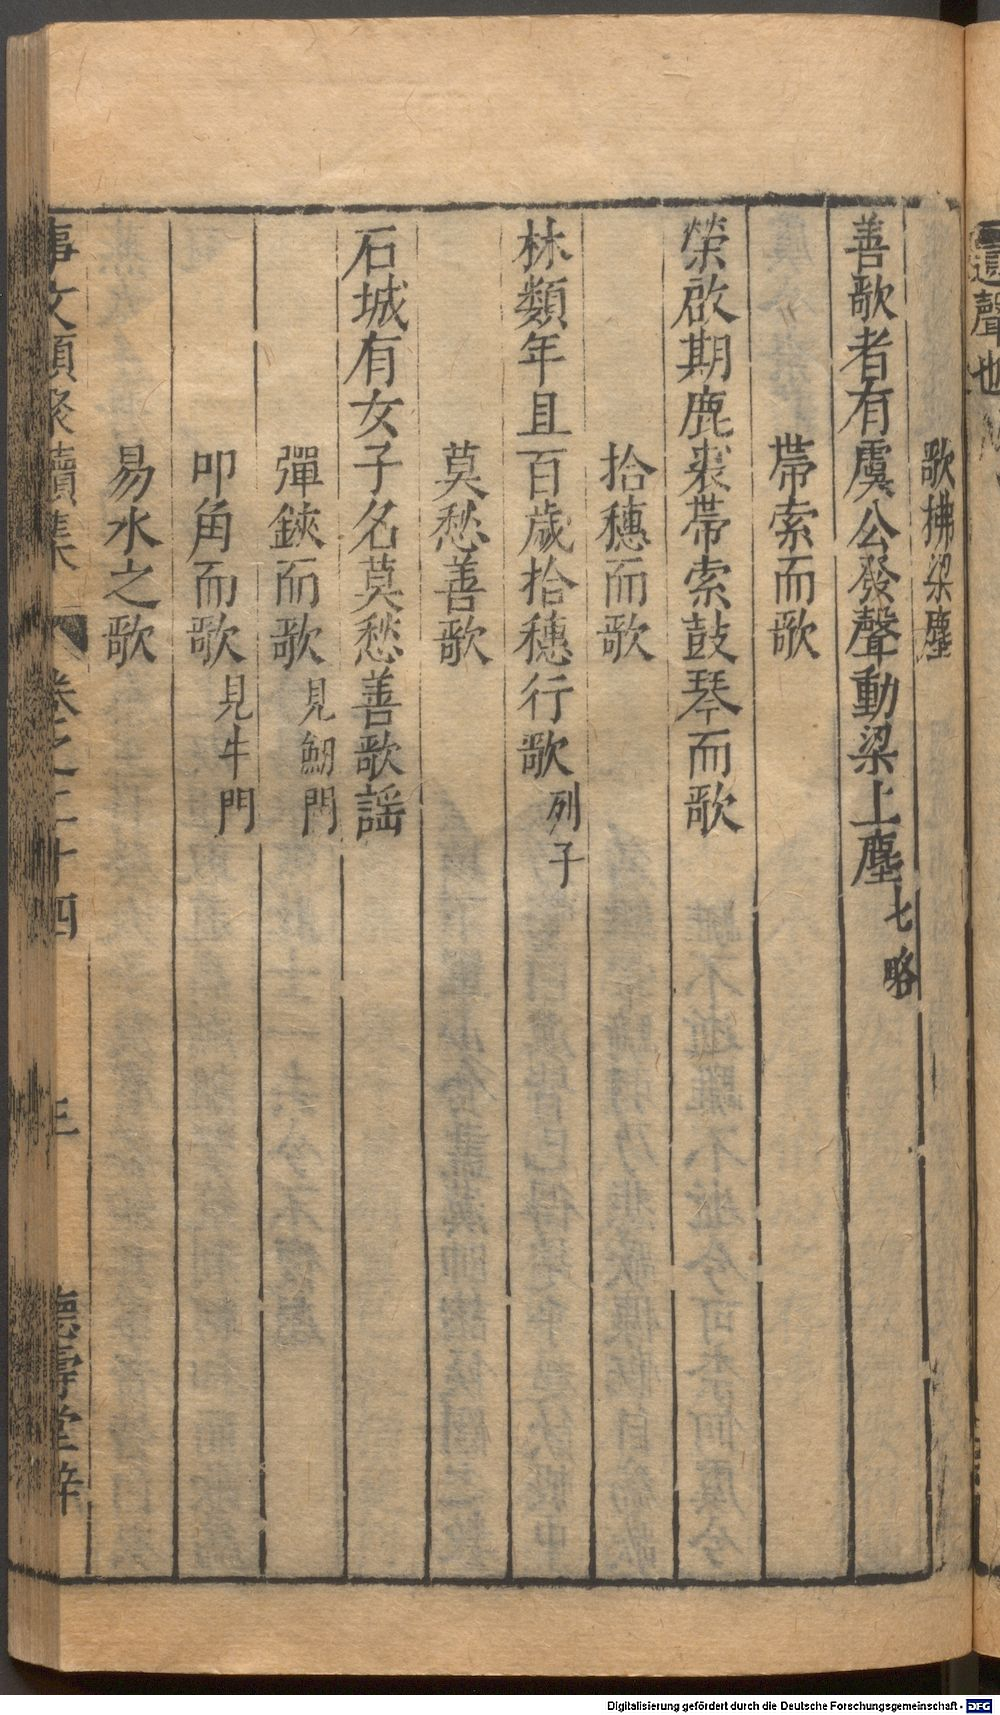 遺聲也
歌拂梁塵
善歌者有虞公發聲動梁上塵七略
帶索而歌
榮啟期鹿裘帶索鼓琴而歌
拾穗而歌
林類年且百歲拾穗行歌列子
莫愁善歌
石城有女子名莫愁善歌謡
彈鋏而歌見魝門
叩角而歌見牛門
易水之歌
事文類聚續集 卷之二十四 三 德壽堂梓
Digitalisierung gefördert durch die Deutsche Forschungsgemeinschaft - DFG